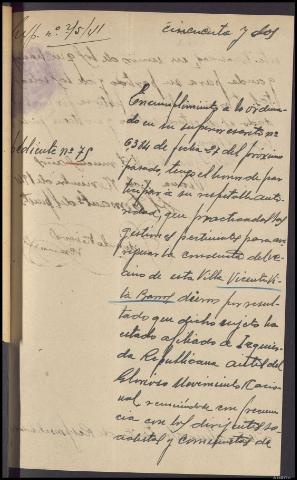 cincuenta y dos
Exp. nº 2/5/41
Expediente nº 75
En cumplimiento a lo ordena-
do en su superior escrito nº
6384 de fecha 27 del próximo
pasado, tengo el honor de par-
ticipar a su respetable auto-
ridad, que practicadas las
gestiones pertinentes para ave-
riguar la conducta del ve-
cino de esta Villa Vicente Vi-
la dieron por resul-
tado que dicho sujeto ha
estado afiliado de Izquier-
da Republicana antes del
Glorioso Movimiento Nacio-
nal reuniéndose con frecuen-
cia con los dirigentes so-
cialistas y comunistas de